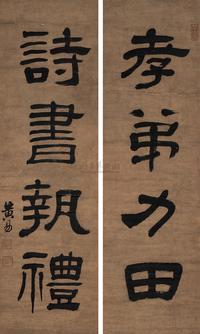 孝弟力田
詩書執禮
黃易